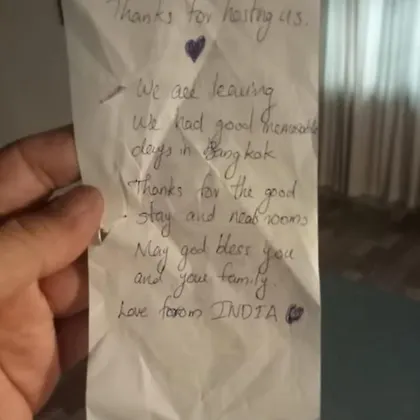 Thanks for hosting us.
We are leaving
We had good memorable
days in Bangkok
Thanks for the good
stay and neat rooms
May god bless you
and your family.
Love from INDIA